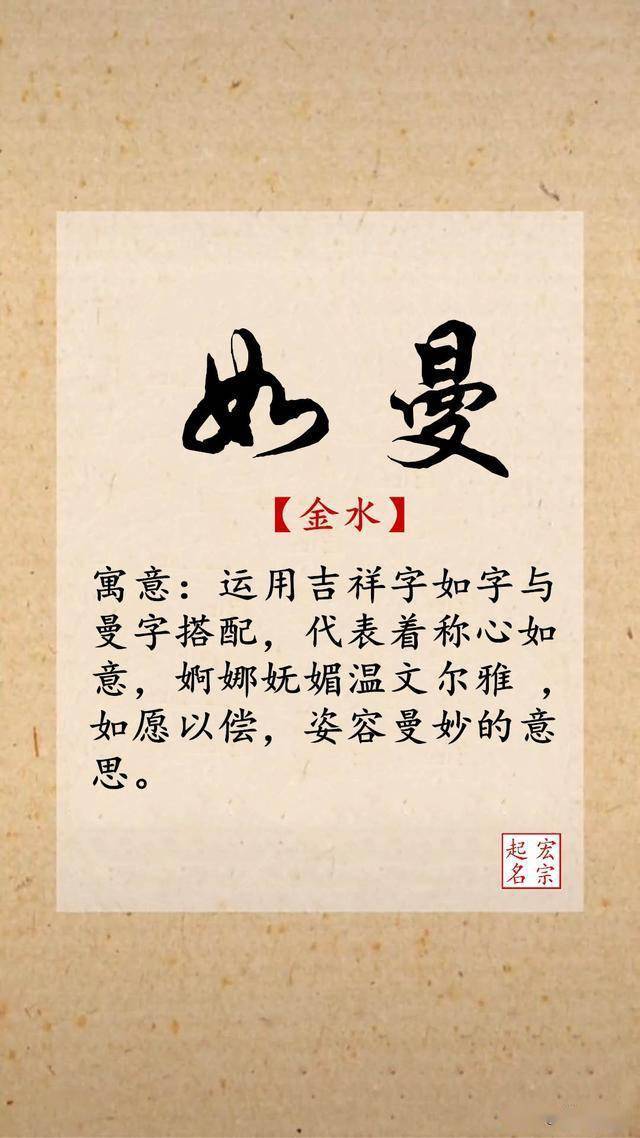 如曼
【金水】
寓意：运用吉祥字如字与
曼字搭配，代表着称心如
意，婀娜妩媚温文尔雅 ，
如愿以偿，姿容曼妙的意
思。
宏宗
起名